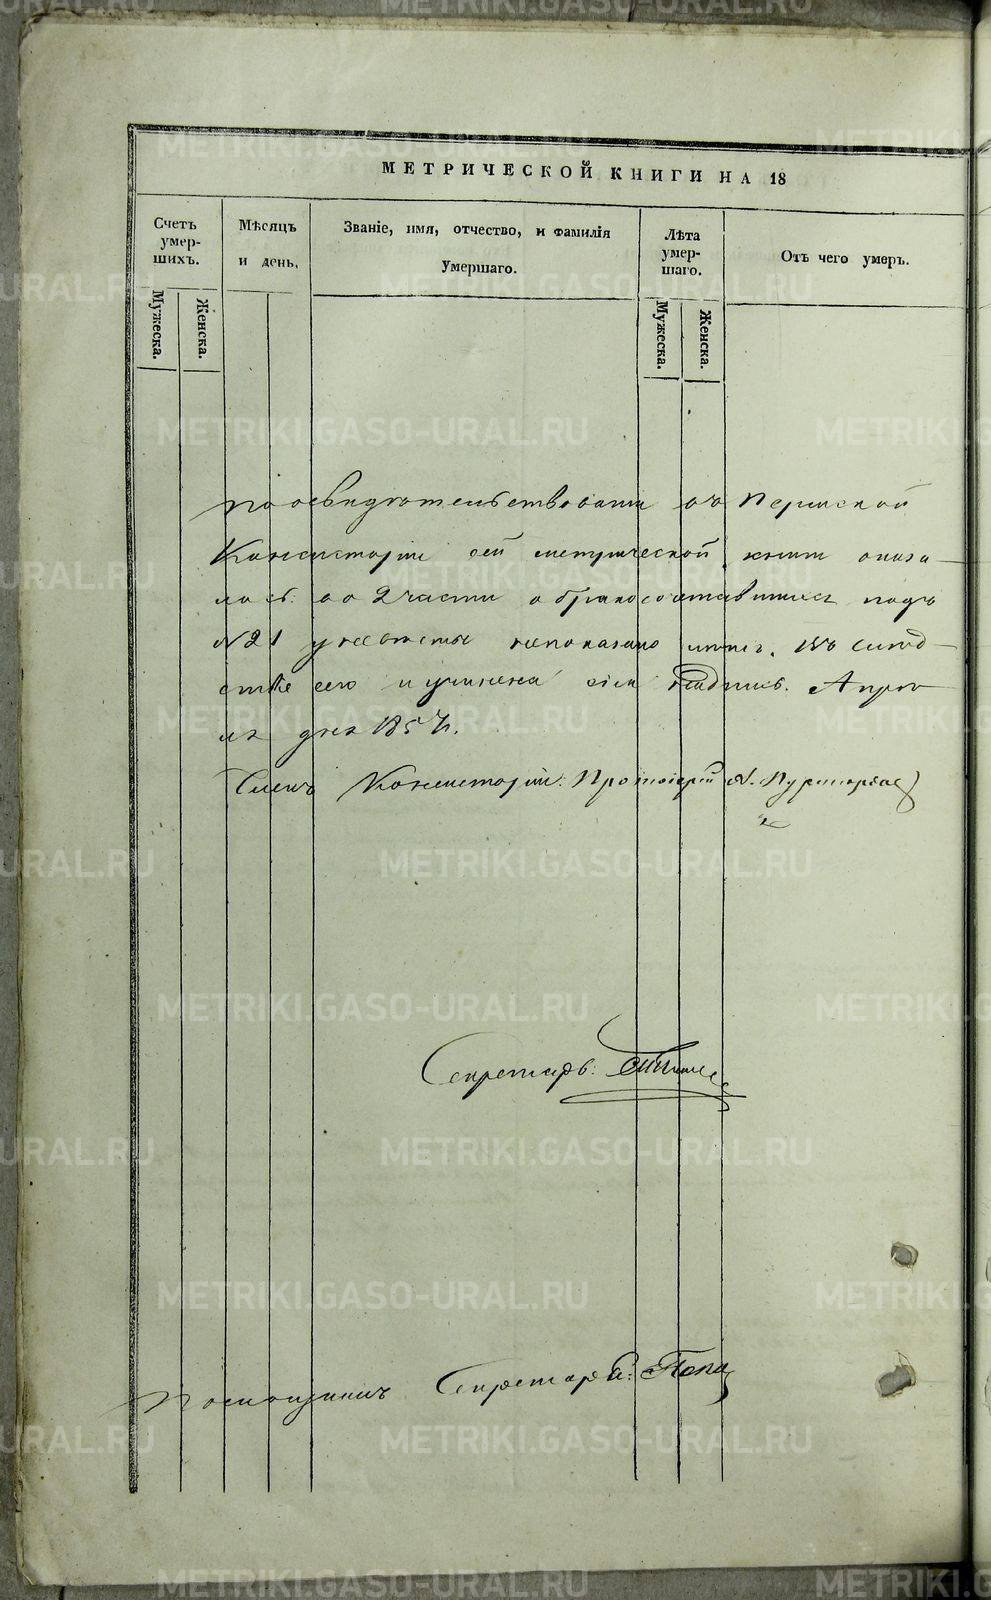 МЕТРИЧЕСКОЙ КНИГИ НА 18
Счетъ умер-шихъ.
Мѣсяцъ и день.
Званіе, имя, отчество, и фамилія Умершаго.
Лѣта умер-шаго.
Отъ чего умеръ.
Мужеска.
Женска.
Мужеска.
Женска.
По освидѣтельствованіи въ Пермской
Консисторіи сей метрической книги оказа-
лось: во 2 части о бракосочетавшихся подъ
№ 21 у невѣсты непоказано лѣтъ. Въ слѣд-
ствіе сего и учинена сія надпись. Апрѣ-
ля дня 1857 г.
Членъ Консисторіи: Протоіерей
Секретарь:
Помощникъ Секретаря:
METRIKI.GASO-URAL.RU